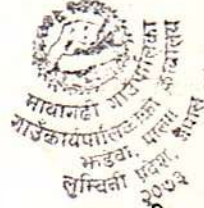 माथागढी गाउँपालिका
गाउँकार्यपालिकाको कार्यालय
झडेवा, पाल्पा
लुम्बिनी प्रदेश, नेपाल
२०७३